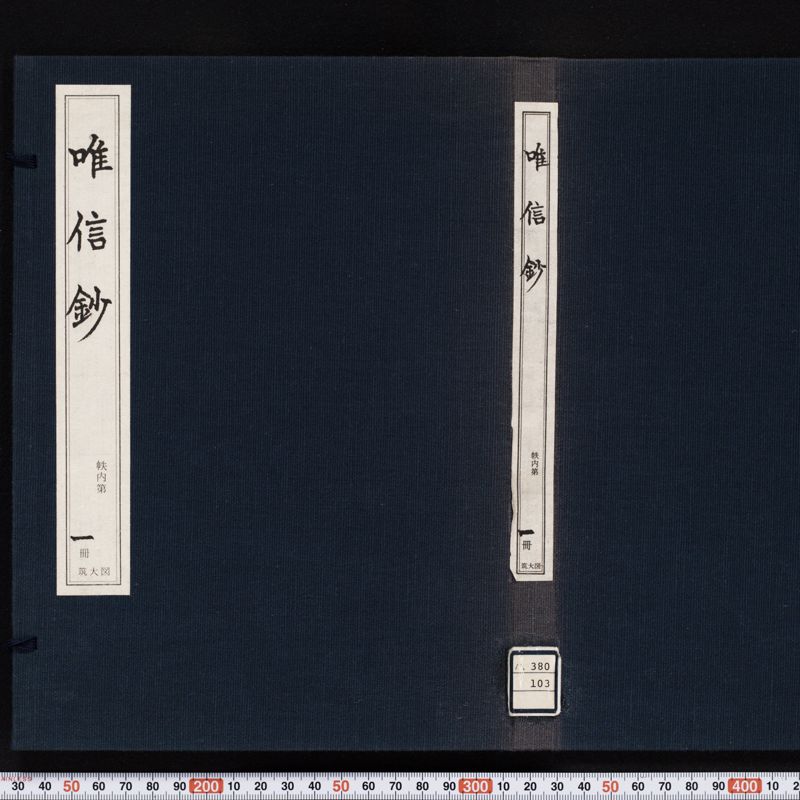 唯信鈔
帙内第
一
冊
筑大図
唯信鈔
帙内第
一
冊
筑大図
380
103
30 40 50 60 70 80 90 200 10 20 30 40 50 60 70 80 90 300 10 20 30 40 50 60 70 80 90 400 10